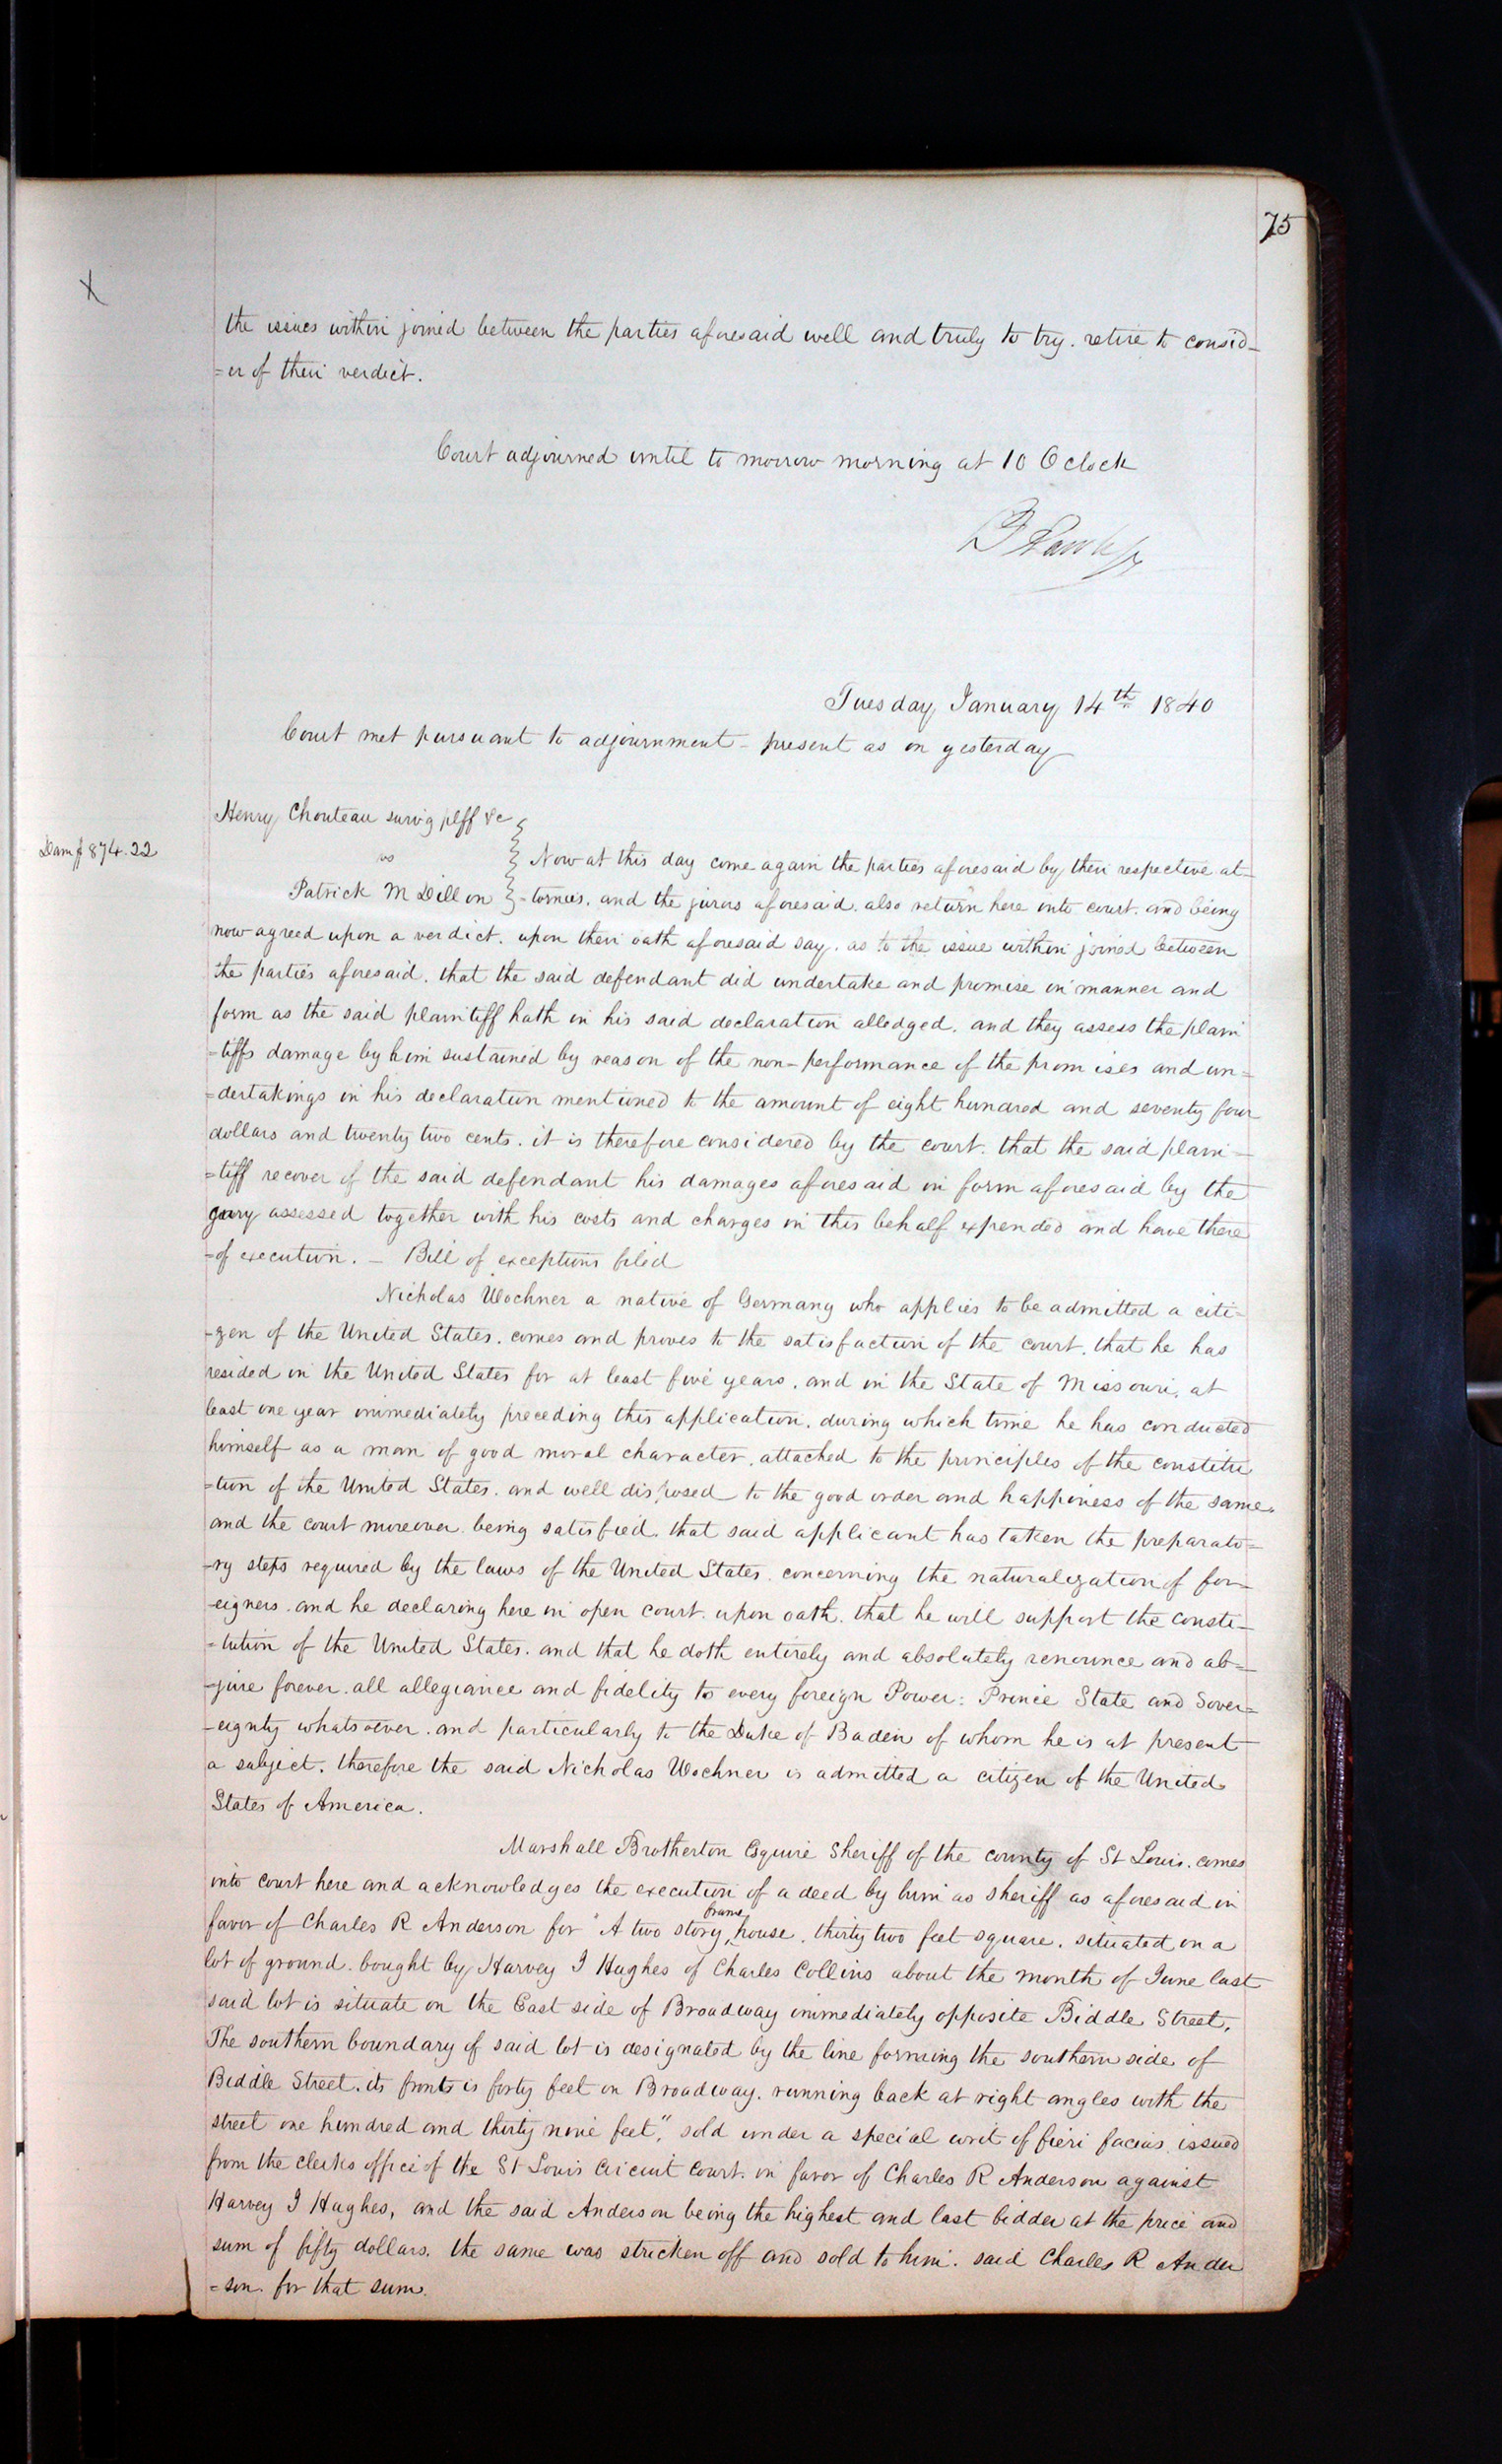 75
X
the issues within joined between the parties aforesaid well and truly to try. retire to consid-
=er of their verdict.
Court adjourned until to morrow morning at 10 Oclock
Tuesday January 14th 1840
Court met pursuant to adjournment - present as on yesterday
Henry Chouteau survg plff &c
Dam $ 874.22
vs } Now at this day come again the parties aforesaid by their respective at-
Patrick M Dillon } =tornies. and the jurors aforesaid. also return here into court. and being
now agreed upon a verdict. upon their oath aforesaid say. as to the issue within joined between
the parties aforesaid. that the said defendant did undertake and promise in manner and
form as the said plaintiff hath in his said declaration alledged. and they assess the plain
=tiffs damage by him sustained by reason of the non-performance of the promises and un=
=dertakings in his declaration mentioned to the amount of eight hundred and seventy four
dollars and twenty two cents. it is therefore considered by the court. that the said plain-
=tiff recover of the said defendant his damages aforesaid in form aforesaid by the
jury assessed together with his costs and charges in this behalf expended and have there
=of execution. - Bill of exceptions filed
Nicholas Wochner a native of Germany who applies to be admitted a citi-
-zen of the United States. comes and proves to the satisfaction of the court. that he has
resided in the United States for at least five years. and in the State of Missouri. at
least one year immediately preceding this application. during which time he has conducted
himself as a man of good moral character. attached to the principles of the constitu
=tion of the United States. and well disposed to the good order and happiness of the same.
and the court moreover being satisfied. that said applicant has taken the preparato=
-ry steps required by the laws of the United States. concerning the naturalization of for-
-eigners. and he declaring here in open court. upon oath. that he will support the consti-
=tution of the United States. and that he doth entirely and absolutely renounce and ab=
-jure forever. all allegiance and fidelity to every foreign Power: Prince State and Sover=
-eignty whatsoever. and particularly to the Duke of Baden of whom he is at present
a subject. therefore the said Nicholas Wochner is admitted a citizen of the United
States of America.
Marshall Brotherton Esquire Sheriff of the county of St Louis. comes
into court here and acknowledges the execution of a deed by him as sheriff as aforesaid in
favor of Charles R Anderson for "A two story frame house. thirty two feet square. situated on a
lot of ground. bought by Harvey I Hughes of Charles Collins about the month of June last
said lot is situate on the East side of Broadway immediately opposite Biddle Street.
The southern boundary of said lot is designated by the line forming the southern side of
Biddle Street. its fronts is forty feet on Broadway. running back at right angles with the
street one hundred and thirty nine feet". sold under a special writ of fieri facias issued
from the clerks office of the St Louis circuit court. in favor of Charles R Anderson against
Harvey I Hughes, and the said Anderson being the highest and last bidder at the price and
sum of fifty dollars. the same was stricken off and sold to him. said Charles R Ander
=son. for that sum.